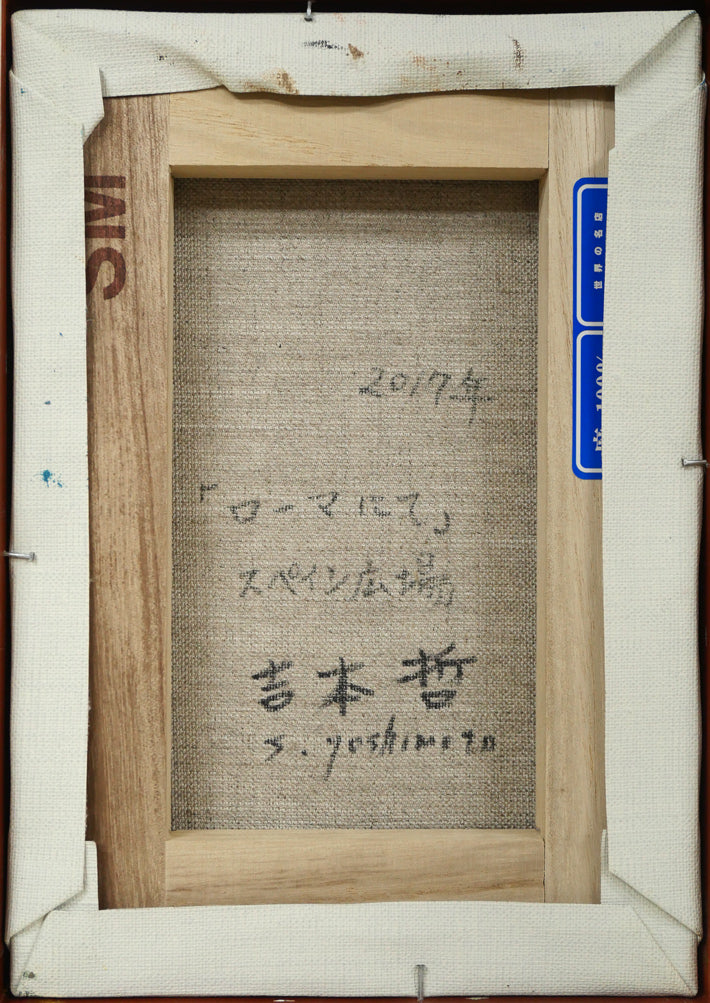 SM
世界の名店
麻 100%
2017年
「ローマにて」
スペイン広場
吉本 哲
s. yoshimoto